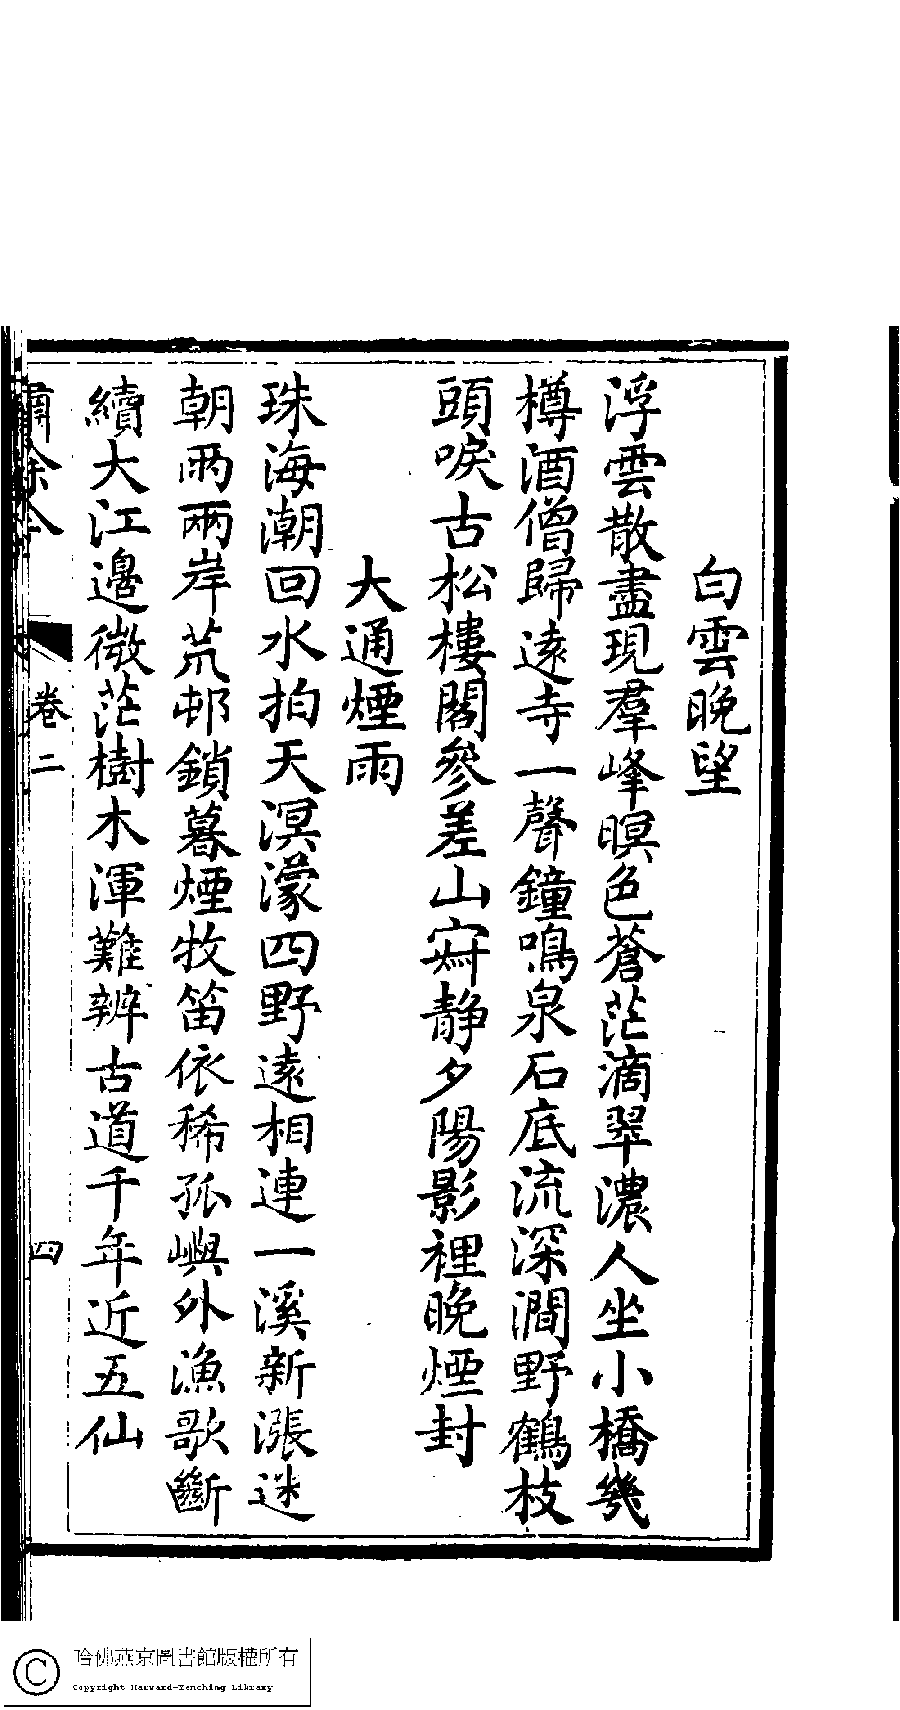 白雲晚望
浮雲散盡現羣峰暝色蒼茫滴翠濃人坐小橋幾
樽酒僧歸遠寺一聲鐘鳴泉石底流深澗野鶴枝
頭唳古松樓閣參差山寂静夕陽影裡晚煙封
大通煙雨
珠海潮回水拍天溟濛四野遠相連一溪新漲迷
朝雨兩岸荒邨鎖暮煙牧笛依稀孤嶼外漁歌斷
續大江邊微茫樹木渾難辨古道千年近五仙
卷二
四
哈佛燕京圖書館版權所有
Copyright Harvard-Yenching Library